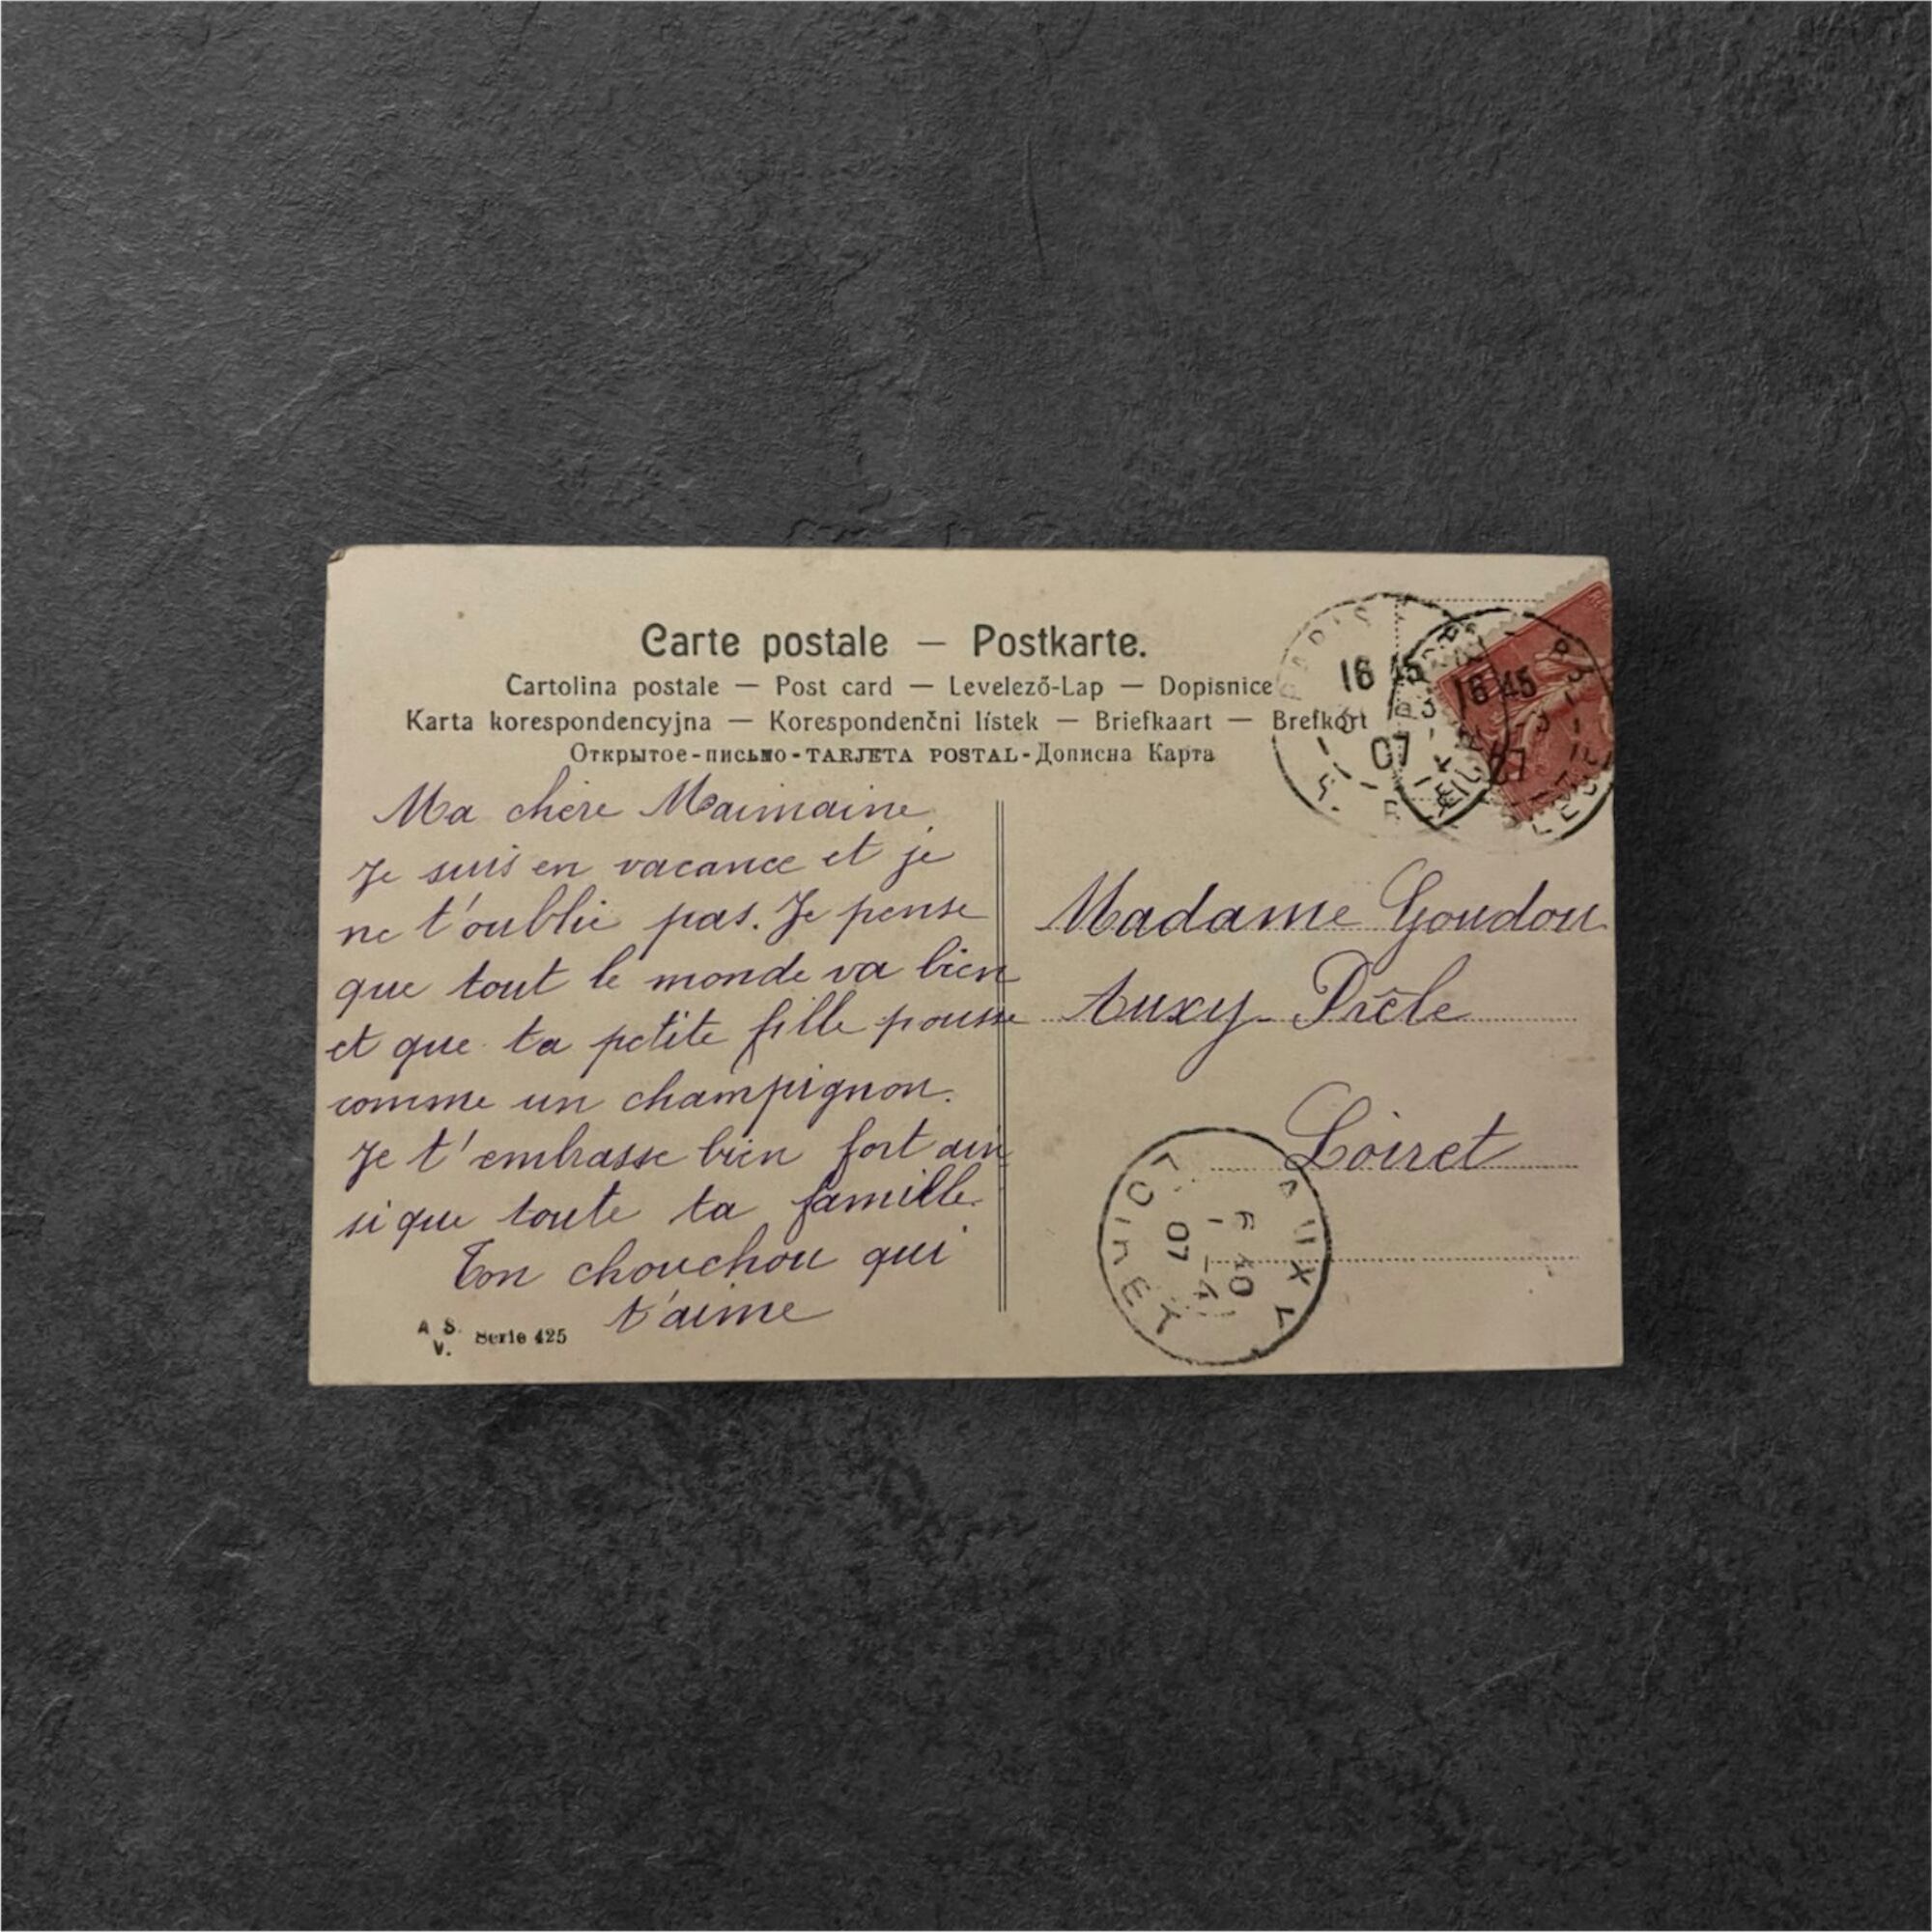 Carte postale — Postkarte.
Cartolina postale — Post card — Levelező-Lap — Dopisnice
Karta korespondencyjna — Korespondenčni lístek — Briefkaart — Brefkort
Открытое-письмо-TARJETA POSTAL-Дописна Карта
PARIS
16 45
07
16 45
3 - 1
07
Ma chère Maimaine
Je suis en vacance et je
ne t'oublie pas. Je pense
que tout le monde va bien
et que ta petite fille pousse
comme un champignon.
Je t'embrasse bien fort ain
si que toute ta famille.
Ton chouchou qui
t'aime
A S. V. Serie 425
Madame Goudou
Auxy
Loiret
AUXY
6 40
4 - 1
07
LOIRET